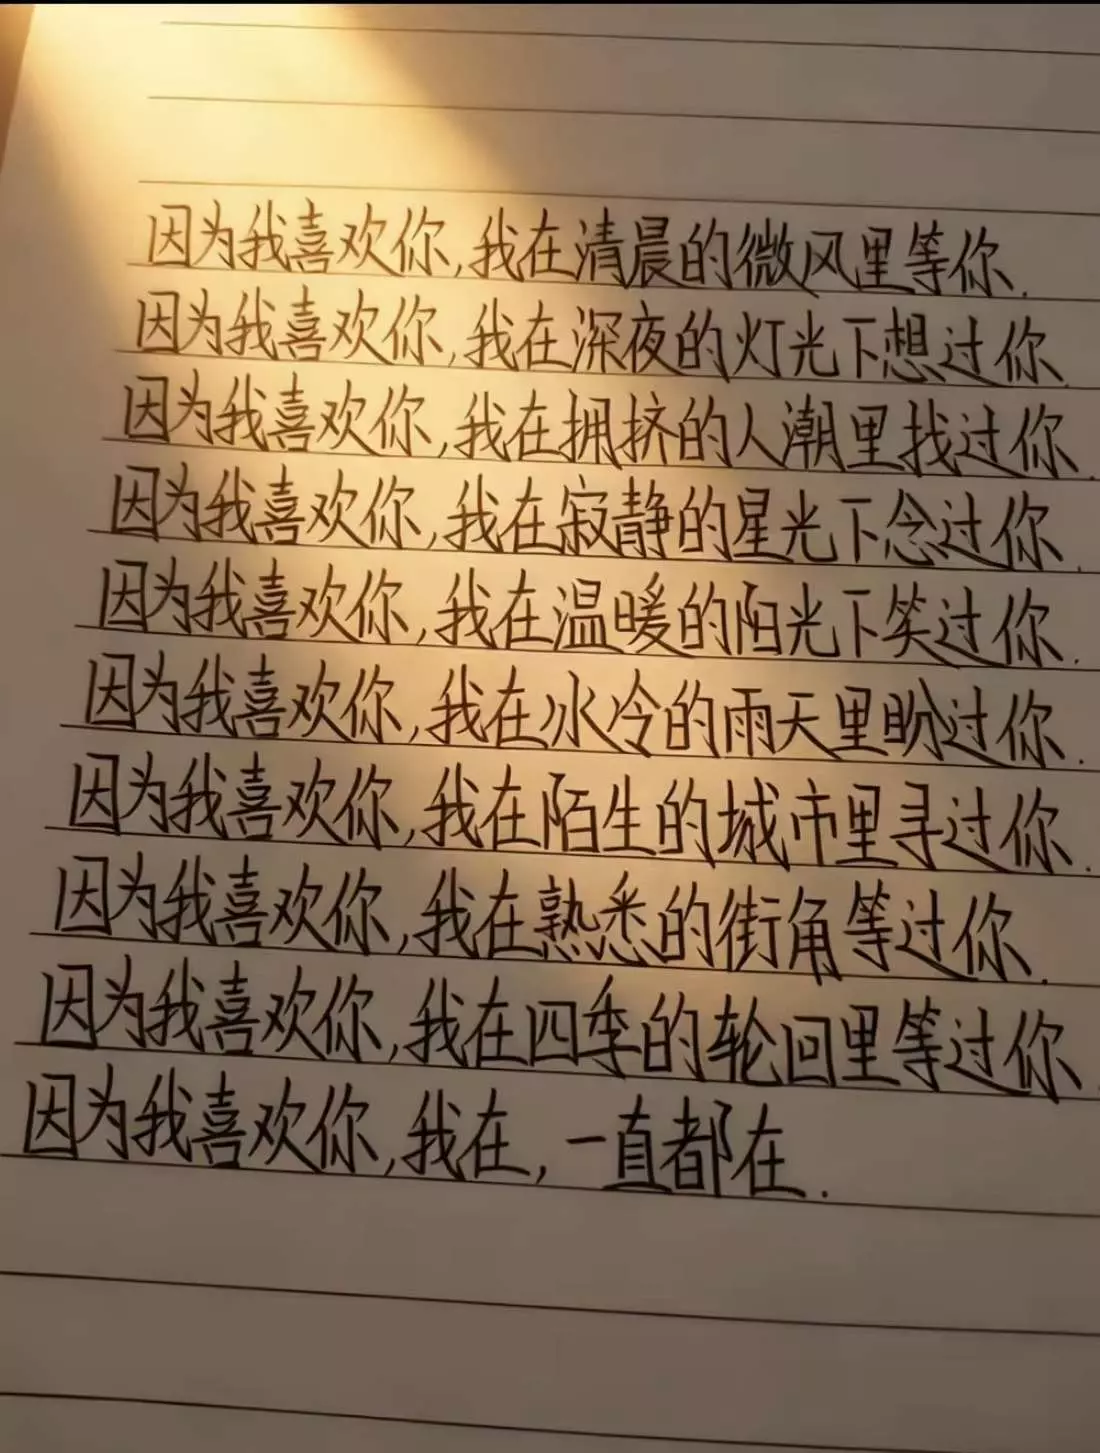 因为我喜欢你,我在清晨的微风里等你.
因为我喜欢你,我在深夜的灯光下想过你.
因为我喜欢你,我在拥挤的人潮里找过你.
因为我喜欢你,我在寂静的星光下念过你.
因为我喜欢你,我在温暖的阳光下笑过你.
因为我喜欢你,我在冰冷的雨天里盼过你.
因为我喜欢你,我在陌生的城市里寻过你.
因为我喜欢你,我在熟悉的街角等过你.
因为我喜欢你,我在四季的轮回里等过你.
因为我喜欢你,我在,一直都在.